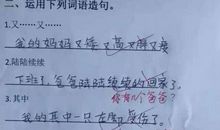 二、运用下列词语造句。
1.又……又……
我的妈妈又矮又高又瘦又瘦
2.陆陆续续
下班了，爸爸陆陆续续的回家了。
3.其中
你有几个爸爸？
我的其中一只左脚受伤了。